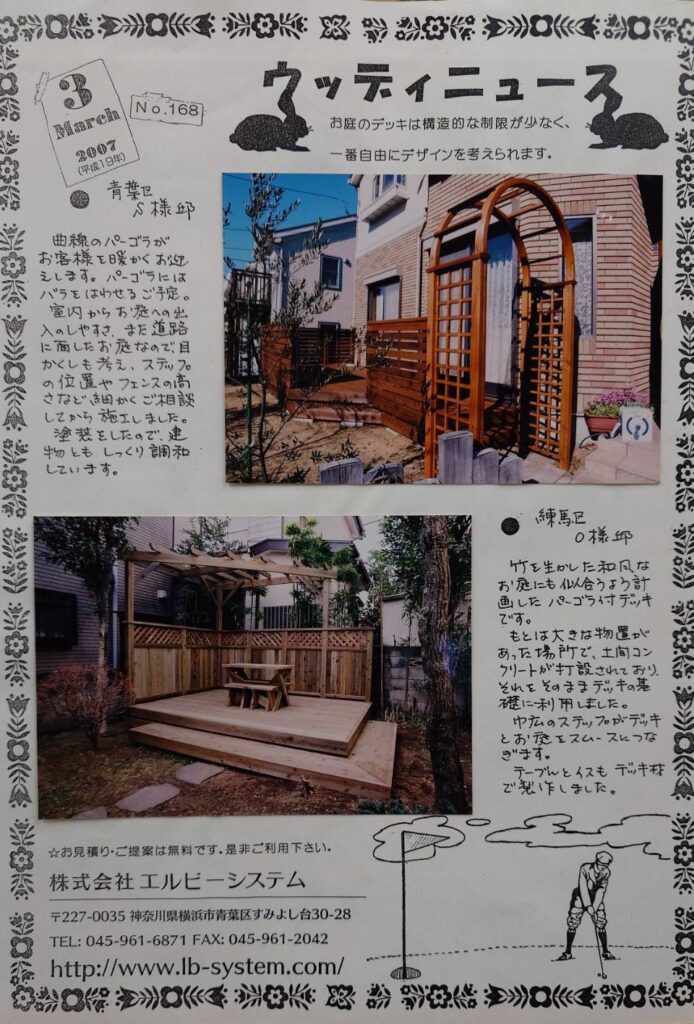 3
March
2007
(平成19年)
No.168
ウッディニュース
お庭のデッキは構造的な制限が少なく、
一番自由にデザインを考えられます。
●青葉区
S様邸
曲線のパーゴラが
お客様を暖かくお迎
えします。パーゴラには
バラをはわせるご予定。
室内からお庭への出
入のしやすさ、また道路
に面したお庭なので目
かくしも考え、ステップ
の位置やフェンスの高
さなど細かくご相談
してから施工しました。
塗装をしたので、建
物ともしっくり調和
しています。
●練馬区
O様邸
竹を生かした和風な
お庭にも似合うよう計
画したパーゴラ付デッキ
です。
もとは大きな物置が
あった場所で、土間コン
クリートが打設されており、
それをそのままデッキの基
礎に利用しました。
巾広のステップがデッキ
とお庭をスムースにつな
ぎます。
テーブルとイスもデッキ材
で製作しました。
☆お見積り・ご提案は無料です。是非ご利用下さい。
株式会社 エルビーシステム
〒227-0035 神奈川県横浜市青葉区すみよし台30-28
TEL: 045-961-6871 FAX: 045-961-2042
http://www.lb-system.com/